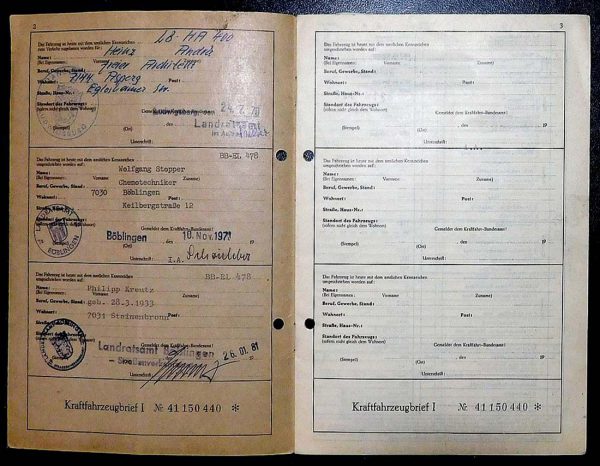 3
Das Fahrzeug ist heute mit dem amtlichen Kennzeichen LB-HA 400
zum Verkehr zugelassen worden für:
Name: Heinz André
(Bei Eigennamen: Vorname Zuname)
Beruf, Gewerbe, Stand: Freier Architekt
Wohnort: 7144 Asperg Post:
Straße, Haus-Nr.: Eglosheimer Str.
Standort des Fahrzeugs:
(sofern nicht gleich dem Wohnort) Gemeldet dem Kraftfahrt-Bundesamt:
24. 7. 70
(Stempel) (Ort) Landratsamt
Unterschrift:
Das Fahrzeug ist heute mit dem amtlichen Kennzeichen BB-EL 478
umgeschrieben worden auf:
Name: Wolfgang Stepper
(Bei Eigennamen: Vorname Zuname)
Beruf, Gewerbe, Stand: Chemotechniker
Wohnort: 7030 Böblingen Post:
Straße, Haus-Nr.: Keilbergstraße 12
Standort des Fahrzeugs:
(sofern nicht gleich dem Wohnort) Gemeldet dem Kraftfahrt-Bundesamt:
LANDRATSAMT BÖBLINGEN
Böblingen den 10. Nov. 1971 19
(Stempel) (Ort)
Unterschrift: I.A.
Das Fahrzeug ist heute mit dem amtlichen Kennzeichen BB-EL 478
umgeschrieben worden auf:
Name: Philipp Kreutz
(Bei Eigennamen: Vorname Zuname)
Beruf, Gewerbe, Stand: geb. 28.3.1933
Wohnort: 7031 Steinenbronn Post:
Straße, Haus-Nr.:
Standort des Fahrzeugs:
(sofern nicht gleich dem Wohnort) Gemeldet dem Kraftfahrt-Bundesamt:
Landratsamt Böblingen
26. 01. 81
(Stempel)
Unterschrift:
Kraftfahrzeugbrief I № 41150440 *
3
Das Fahrzeug ist heute mit dem amtlichen Kennzeichen
umgeschrieben worden auf:
Name:
(Bei Eigennamen: Vorname Zuname)
Beruf, Gewerbe, Stand:
Wohnort: Post:
Straße, Haus-Nr.:
Standort des Fahrzeugs:
(sofern nicht gleich dem Wohnort) Gemeldet dem Kraftfahrt-Bundesamt:
den 19
(Stempel) (Ort)
Unterschrift:
Das Fahrzeug ist heute mit dem amtlichen Kennzeichen
umgeschrieben worden auf:
Name:
(Bei Eigennamen: Vorname Zuname)
Beruf, Gewerbe, Stand:
Wohnort: Post:
Straße, Haus-Nr.:
Standort des Fahrzeugs:
(sofern nicht gleich dem Wohnort) Gemeldet dem Kraftfahrt-Bundesamt:
den 19
(Stempel) (Ort)
Unterschrift:
Das Fahrzeug ist heute mit dem amtlichen Kennzeichen
umgeschrieben worden auf:
Name:
(Bei Eigennamen: Vorname Zuname)
Beruf, Gewerbe, Stand:
Wohnort: Post:
Straße, Haus-Nr.:
Standort des Fahrzeugs:
(sofern nicht gleich dem Wohnort) Gemeldet dem Kraftfahrt-Bundesamt:
den 19
(Stempel) (Ort)
Unterschrift:
Kraftfahrzeugbrief I № 41150440 *